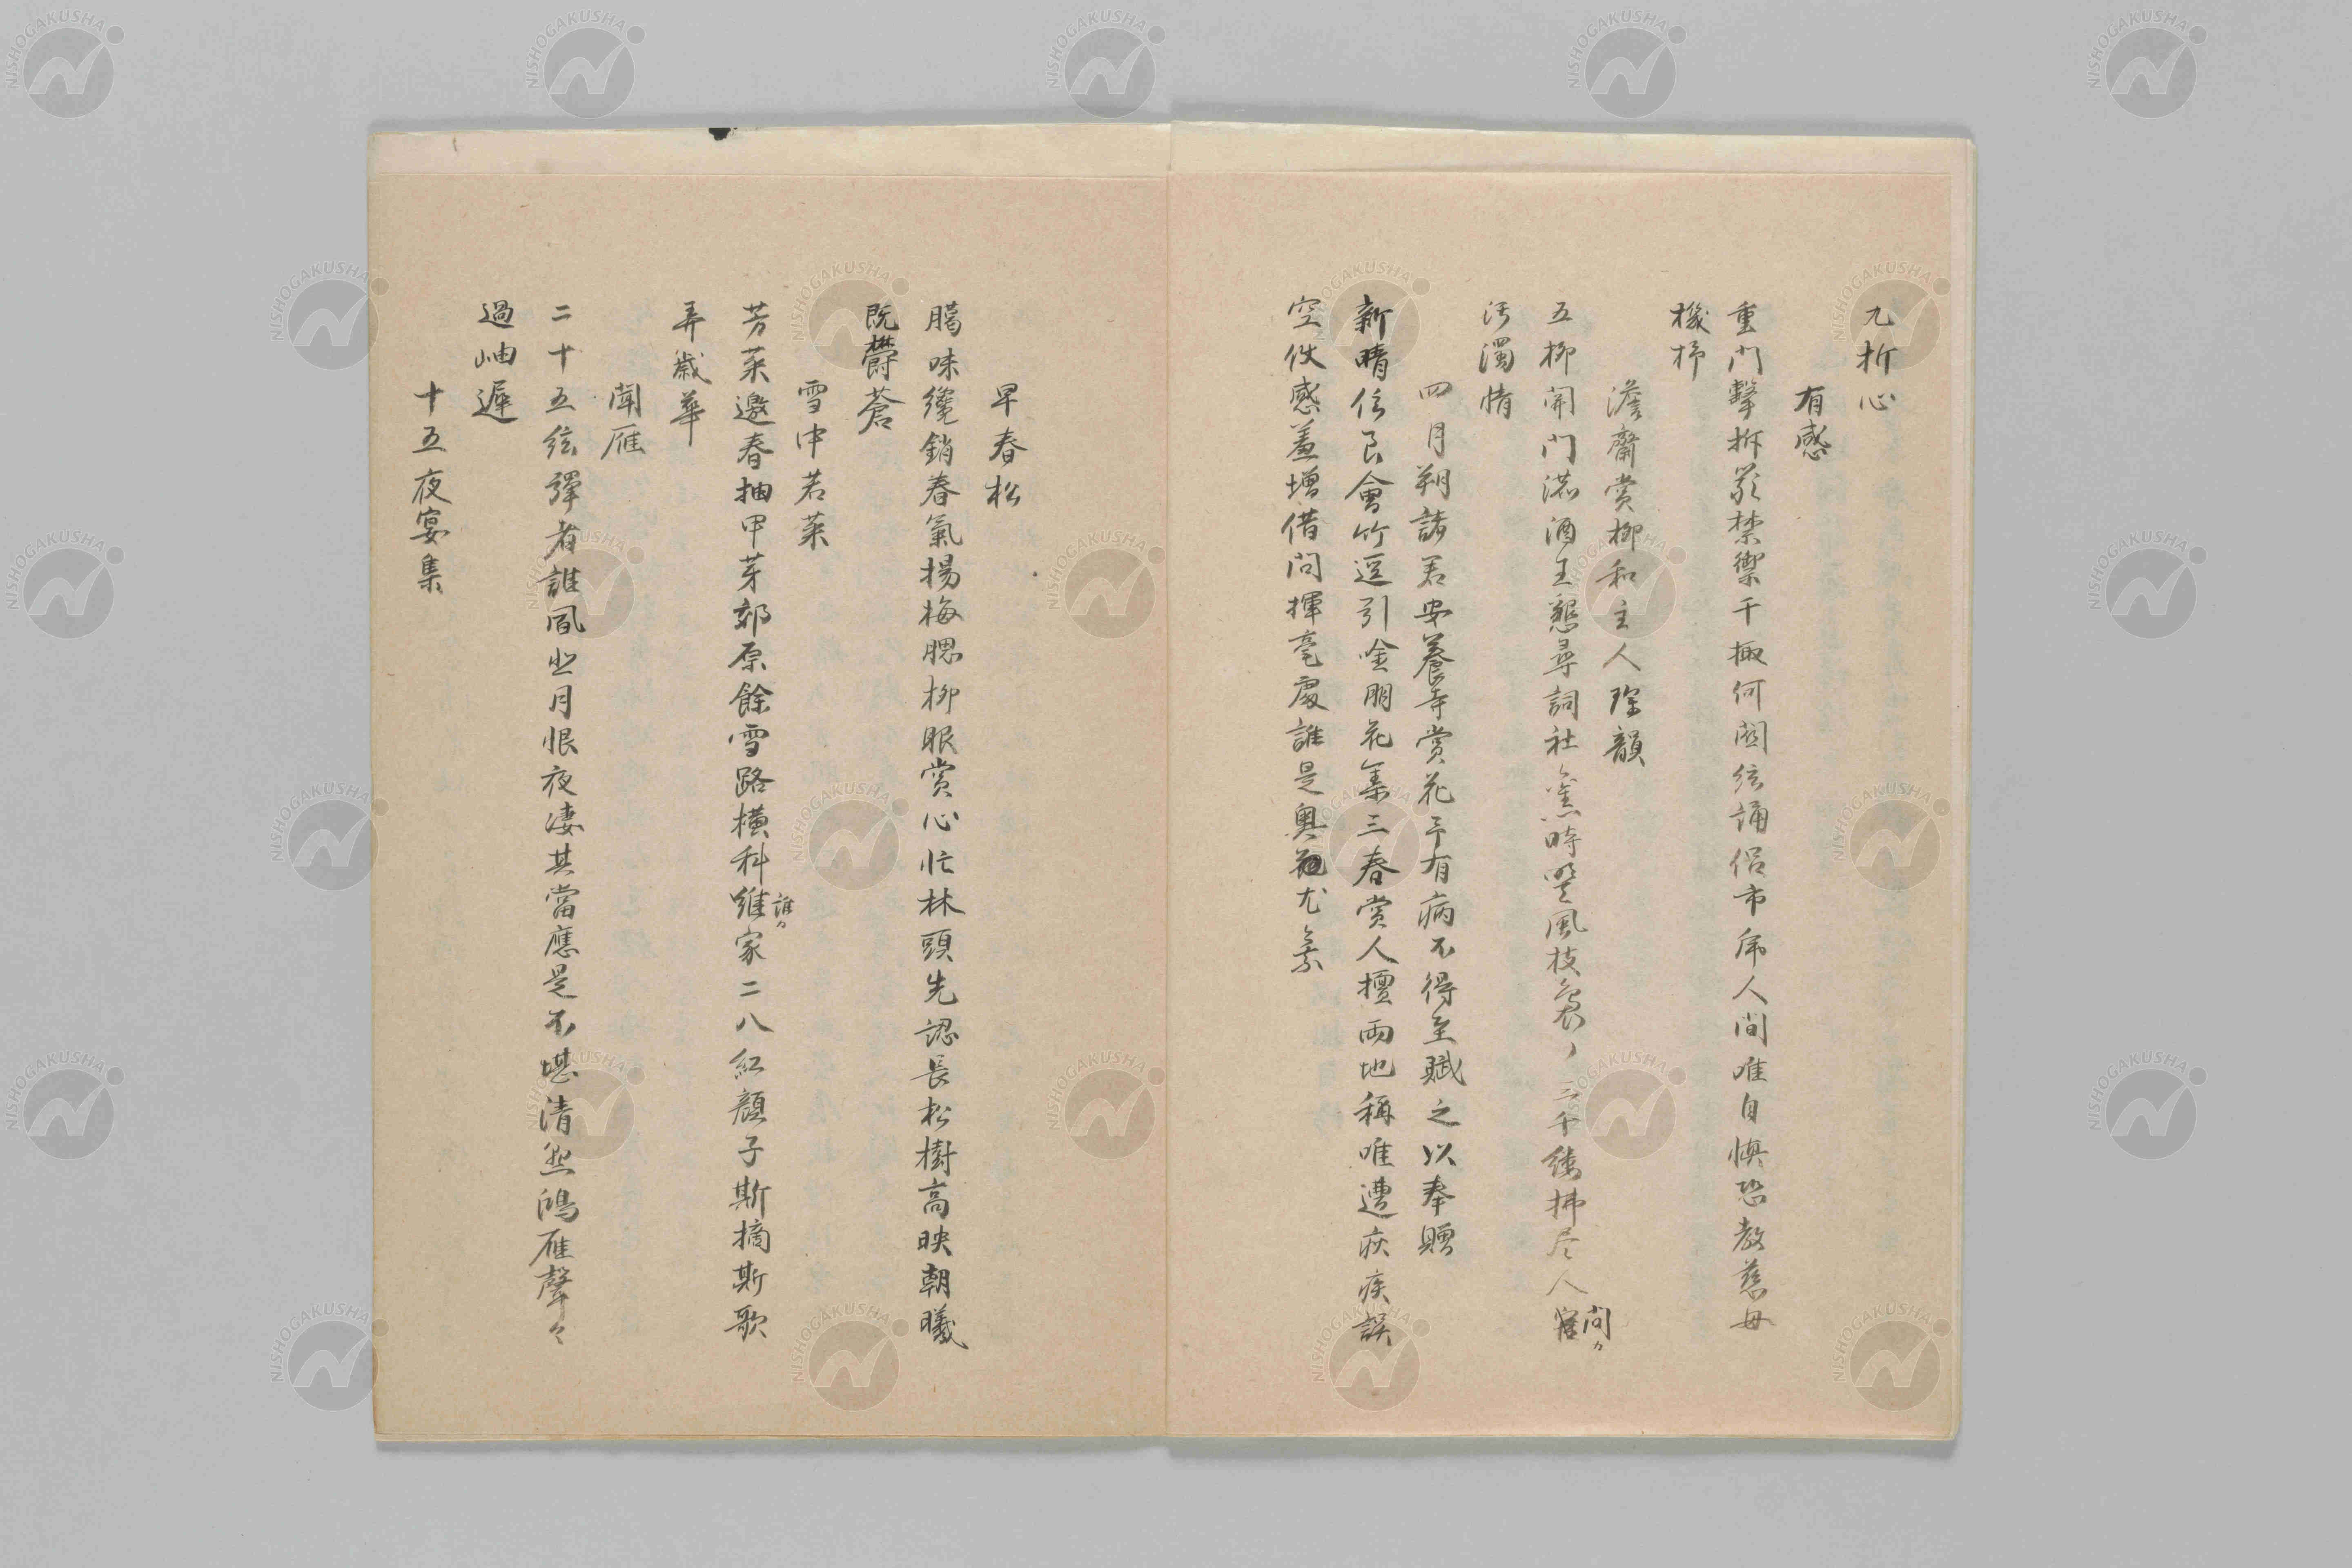 九折心
有感
重門擊柝嚴禁禦千掫何関弦誦侶市虎人間唯自懊恐教慈母
機杼
澹齋賞柳和主人 韻
五柳開門漉酒 懇尋詞社 時 風枝裊〻三千縷拂尽人窟
問カ
汚濁情
四月朔諸君安養寺賞花予有病不得至賦之以奉贈
新晴仾良會竹逕引唫朋花集三春賞人擅兩地稱唯遭疾誤
空佚感羞增借問揮毫處誰是奥 尤
早春松
臈味纔銷春氣揚梅腮柳眼賞心忙林頭先認長松樹高映朝曦
既欝蒼
雪中若菜
芳菜邀春抽甲芽郊原餘雪路橫斜維家二八紅顏子斯摘斯歌
誰カ
弄歲華
聞雁
二十五弦彈者誰 月恨夜凄其當應是不堪清怨鴻雁聲々
過岫遲
十五夜宴集
NISHOGAKUSHA